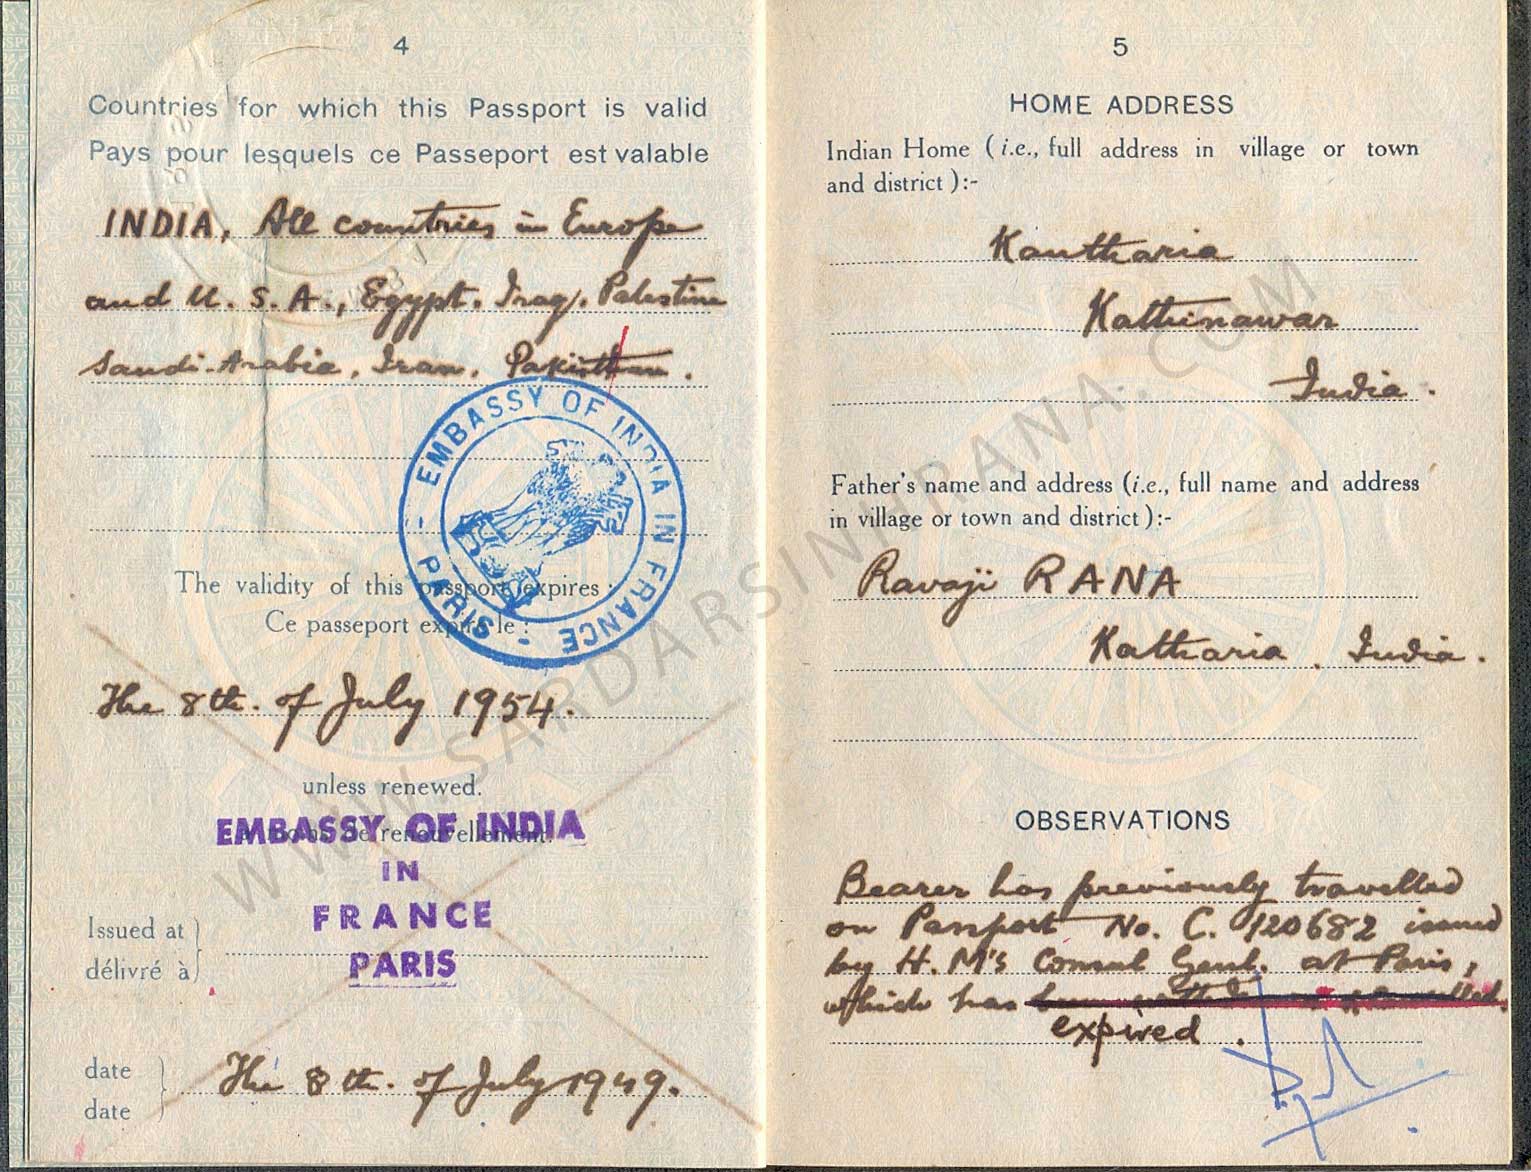 4
Countries for which this Passport is valid
Pays pour lesquels ce Passeport est valable
INDIA, All countries in Europe
and U. S. A., Egypt, Iraq, Palestine
Saudi-Arabia, Iran, Pakisthan.
EMBASSY OF INDIA IN FRANCE
- PARIS -
The validity of this passport expires :
Ce passeport expire le :
The 8th. of July 1954.
unless renewed.
à moins de renouvellement.
EMBASSY OF INDIA
IN
FRANCE
PARIS
Issued at
délivré à
date
The 8th. of July 1949.
date
5
HOME ADDRESS
Indian Home (i.e., full address in village or town
and district ):-
Kantharia
Kathinawar
India.
Father's name and address (i.e., full name and address
in village or town and district ):-
Ravaji RANA
Katharia, India.
OBSERVATIONS
Bearer has previously travelled
on Passport No. C. 120682 issued
by H. M's Consul Genl. at Paris,
which has
expired.
WWW.SARDARSINHRANA.COM